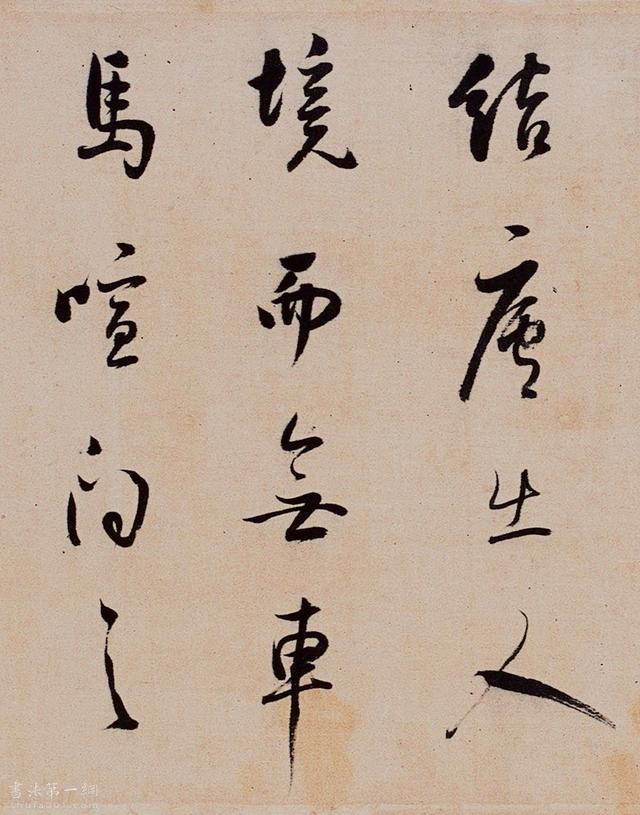 結廬在人
境而無車
馬喧問之
書法第一網